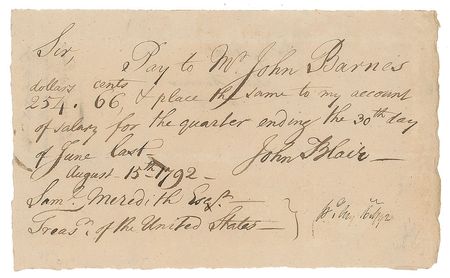 Sir,
Pay to Mr John Barnes
dollars cents
254. 66, & place the same to my account
of salary for the quarter ending the 30th day
of June last
August 15th 1792
John Blair
Saml. Meredith Esqr.
Treasr. of the United States